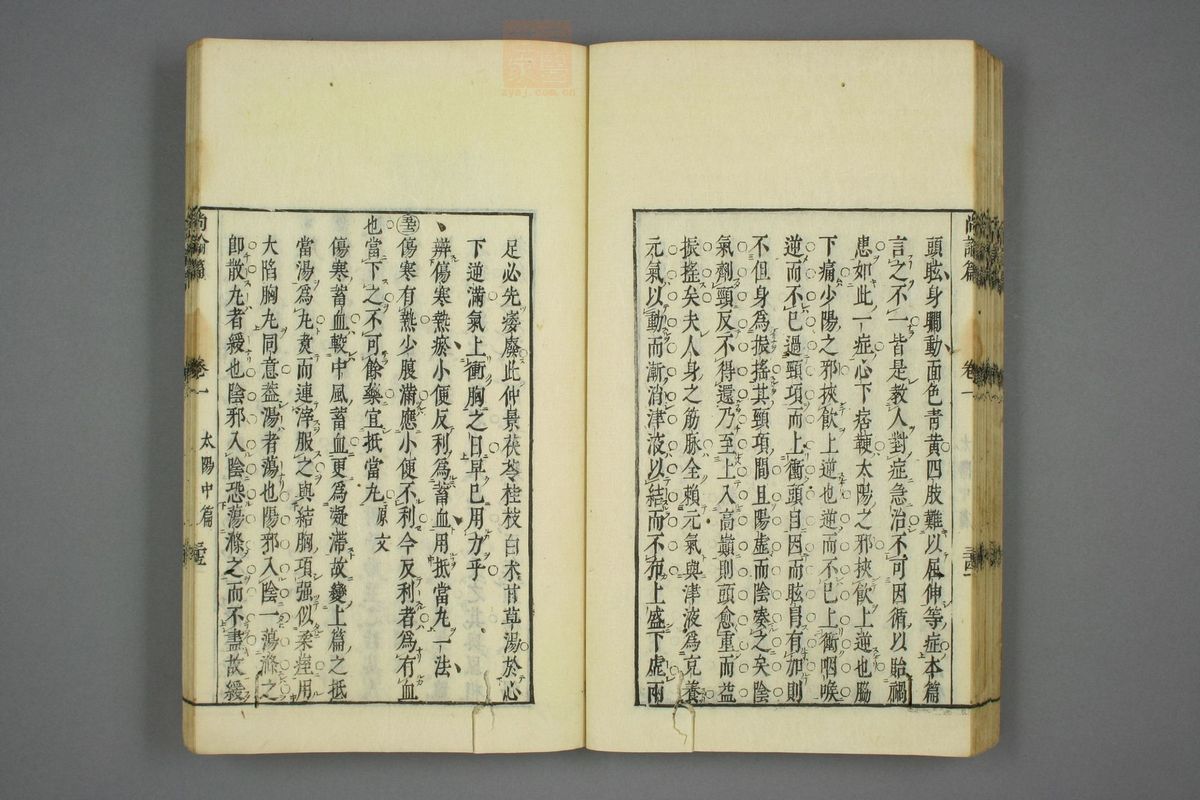 頭眩身瞤動面色青黃四肢難以屈伸等症本篇
言之不一皆是教人對症急治不可因循以貽禍
患如此一症心下痞鞕太陽之邪挾飲上逆也脇
下痛少陽之邪挾飲上逆也逆而不已上衝咽喉
逆而不已過頸項而上衝頭目因而眩冒有加則
不但身為振搖其頸項間且陽虛而陰湊之矣陰
氣劑頸反不得還乃至上入高巔則頭愈重而益
振搖矣夫人身之筋脉全賴元氣與津液為充養
元氣以動而漸消津液以結而不布上盛下虛兩
足必先痿廢此仲景茯苓桂枝白朮甘草湯於心
下逆滿氣上衝胸之日早已用力乎
辨傷寒熱瘀小便反利為蓄血用抵當丸一法
傷寒有熱少腹滿應小便不利今反利者為有血
也當下之不可餘藥宜抵當丸 原文
傷寒蓄血較中風蓄血更為凝滯故變上篇之抵
當湯為丸煑而連滓服之與結胸項强似柔痓用
大陷胸丸同意葢湯者蕩也陽邪入陰一蕩滌之
卽散丸者緩也陰邪入陰恐蕩滌之而不盡故緩
尚論篇 卷一 太陽中篇
尚論篇 卷一
zysj.com.cn